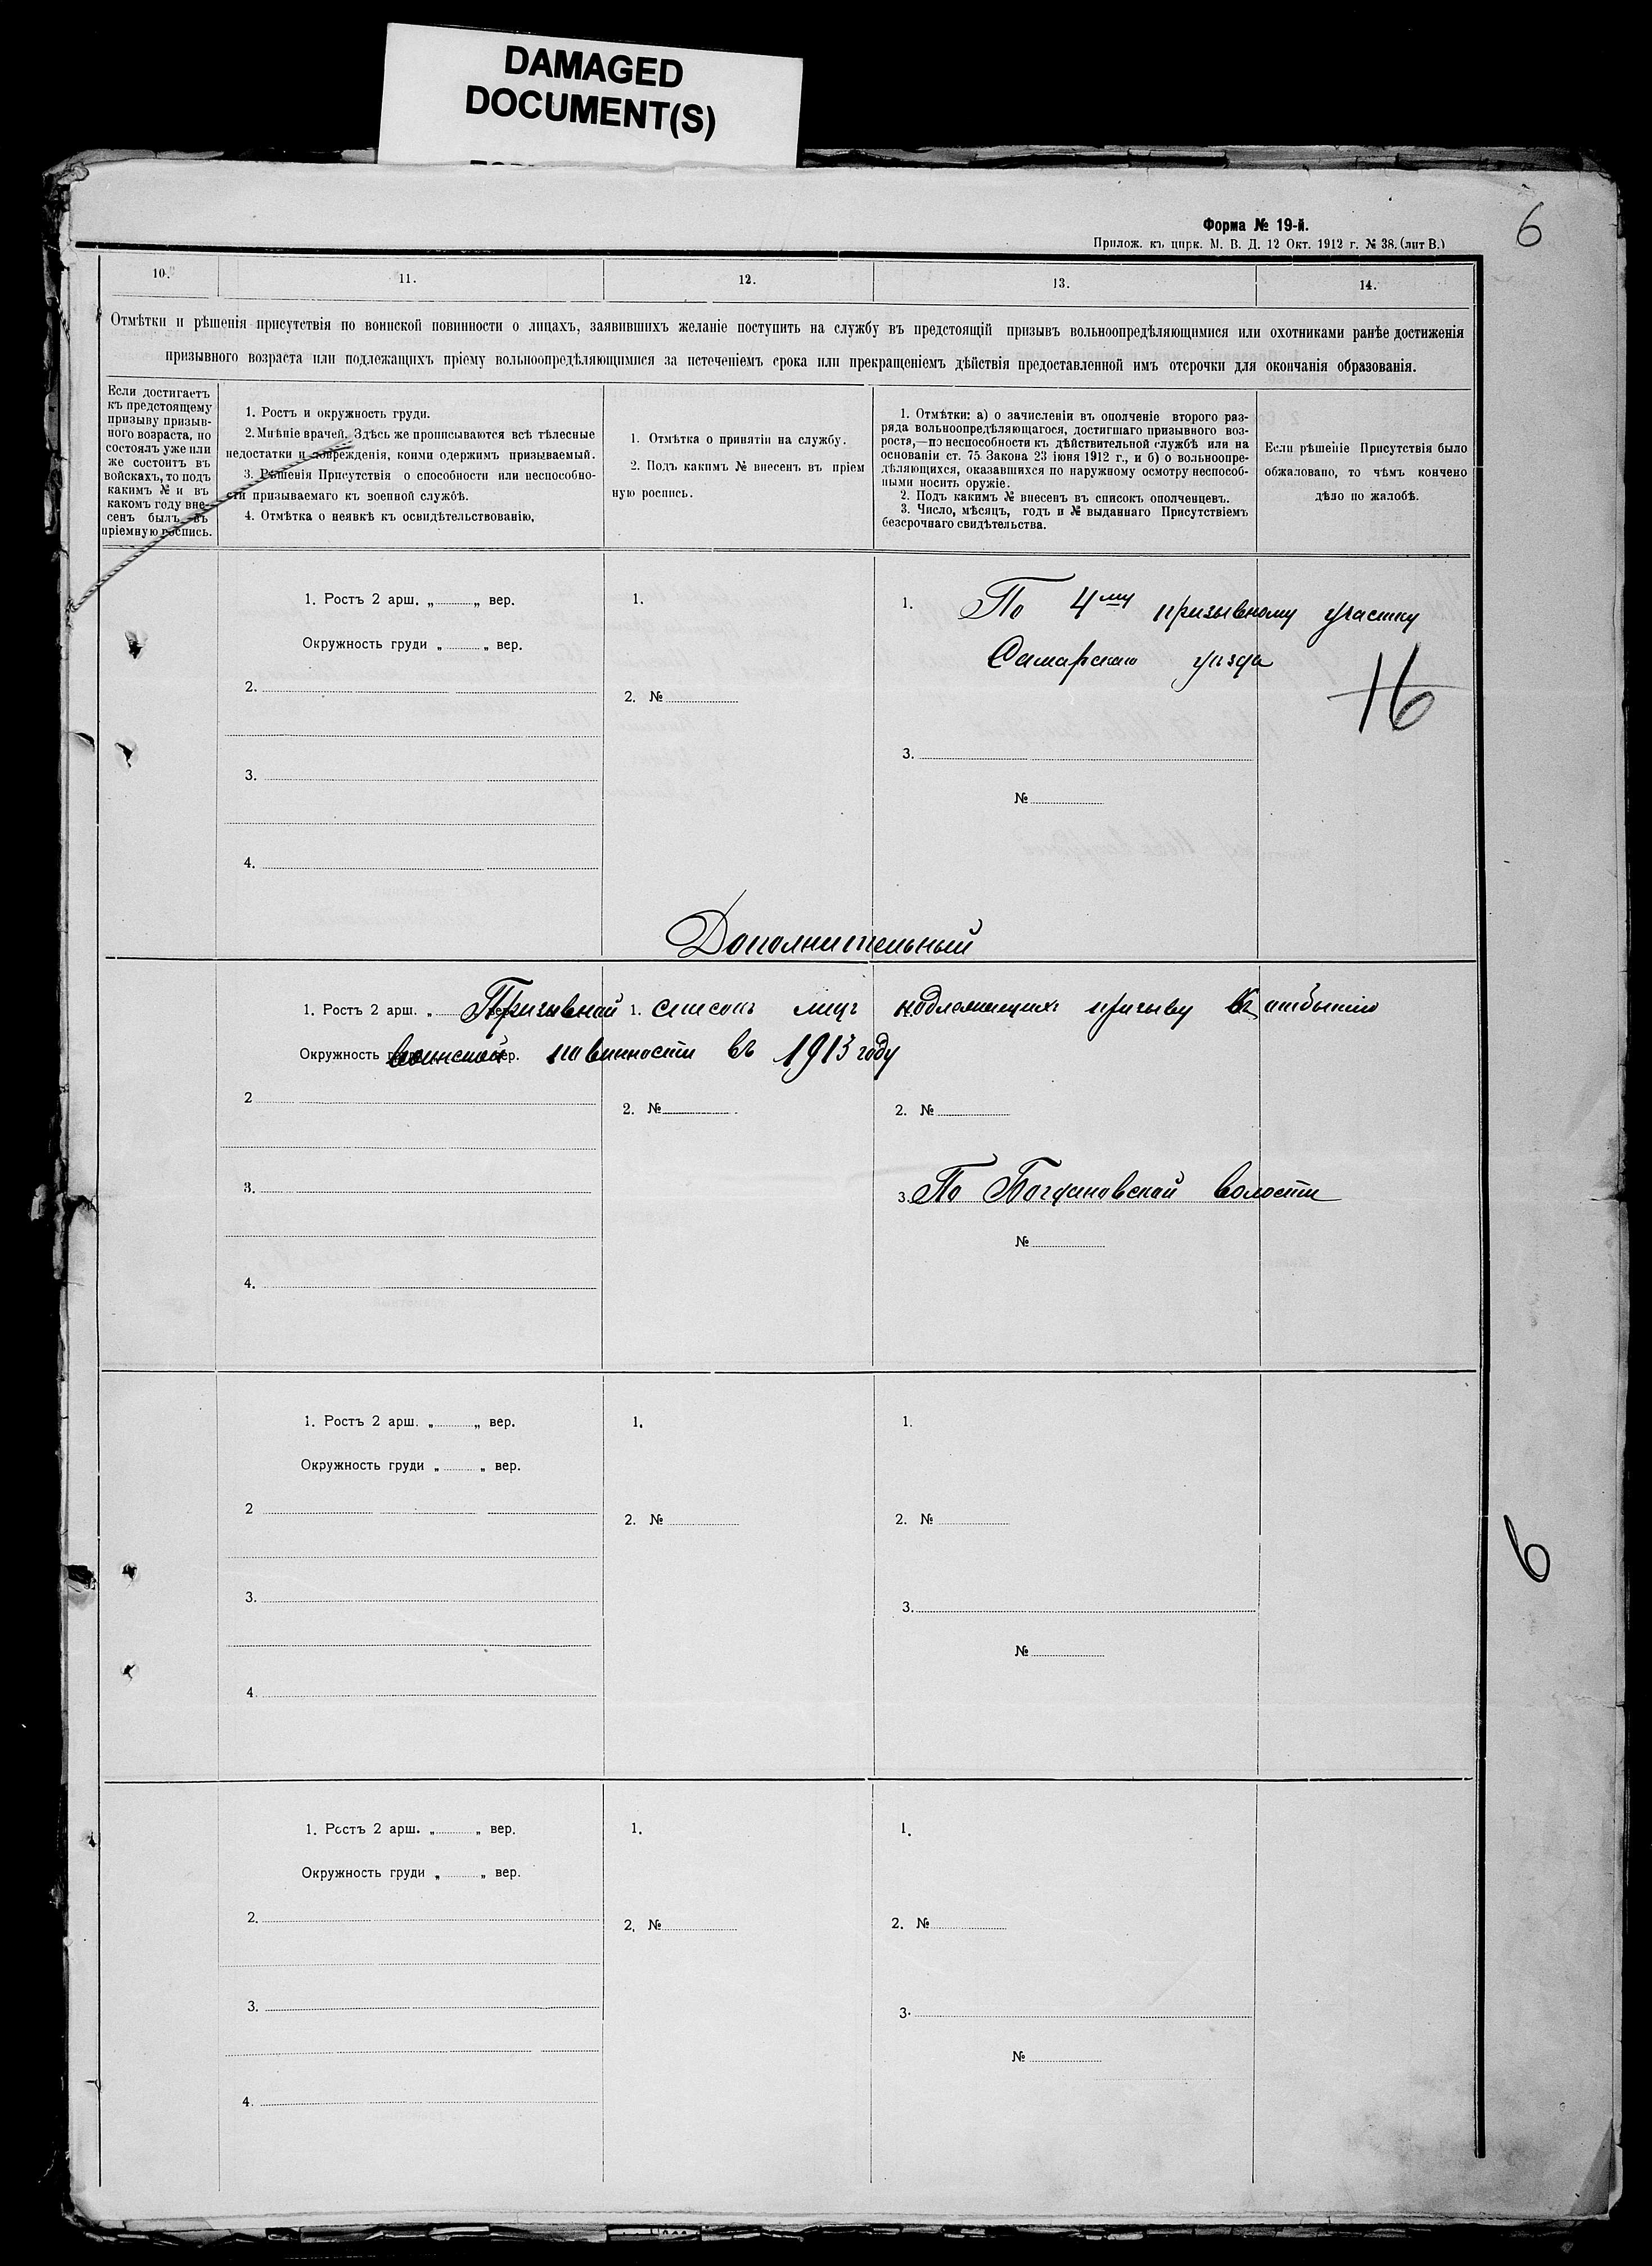 DAMAGED
DOCUMENT(S)
6
Форма № 19-й.
Прилож. къ цирк. М. В. Д. 12 Окт. 1912 г. № 38. (лит В.)
10. 11. 12. 13. 14.
Отмѣтки и рѣшенія присутствія по воинской повинности о лицахъ, заявившихъ желаніе поступить на службу въ предстоящій призывъ вольноопредѣляющимися или охотниками ранѣе достиженія
призывного возраста или подлежащихъ пріему вольноопредѣляющимися за истеченіемъ срока или прекращеніемъ дѣйствія предоставленной имъ отсрочки для окончанія образованія.
Если достигаетъ
къ предстоящему
призыву призыв-
ного возраста, но
состоялъ уже или
же состоитъ въ
войскахъ, то подъ
какимъ № и въ
какомъ году вне-
сенъ былъ въ
пріемную роспись.
1. Ростъ и окружность груди.
2. Мнѣніе врачей. Здѣсь же прописываются всѣ тѣлесные
недостатки и поврежденія, коими одержимъ призываемый.
3. Рѣшенія Присутствія о способности или неспособно-
сти призываемаго къ военной службѣ.
4. Отмѣтка о неявкѣ къ освидѣтельствованію,
1. Отмѣтка о принятіи на службу.
2. Подъ какимъ № внесенъ въ пріем
ную роспись.
1. Отмѣтки: а) о зачисленіи въ ополченіе второго раз-
ряда вольноопредѣляющагося, достигшаго призывного воз-
роста,—по неспособности къ дѣйствительной службѣ или на
основаніи ст. 75 Закона 23 іюня 1912 г., и б) о вольноопре-
дѣляющихся, оказавшихся по наружному осмотру неспособ-
ными носить оружіе.
2. Подъ какимъ № внесенъ въ списокъ ополченцевъ.
3. Число, мѣсяцъ, годъ и № выданнаго Присутствіемъ
безсрочнаго свидѣтельства.
Если рѣшеніе Присутствія было
обжаловано, то чѣмъ кончено
дѣло по жалобѣ.
1. Ростъ 2 арш. „ „ вер.
Окружность груди „ „ вер.
2.
3.
4.
1.
2. №
1. По 4му призывному участку
Самарскаго уѣзда
3.
№
16
Дополнительный
1. Ростъ 2 арш. „ Призывной 1. списокъ лицъ подлежащихъ призыву къ отбытію
Окружность воинской повинности въ 1913 году
2
3.
4.
2. №
2. №
3. По Богдановской волости
№
1. Ростъ 2 арш. „ „ вер.
Окружность груди „ „ вер.
2
3.
4.
1.
2. №
1.
2. №
3.
№
6
1. Ростъ 2 арш. „ „ вер.
Окружность груди „ „ вер.
2.
3.
4.
1.
2. №
1.
2. №
3.
№